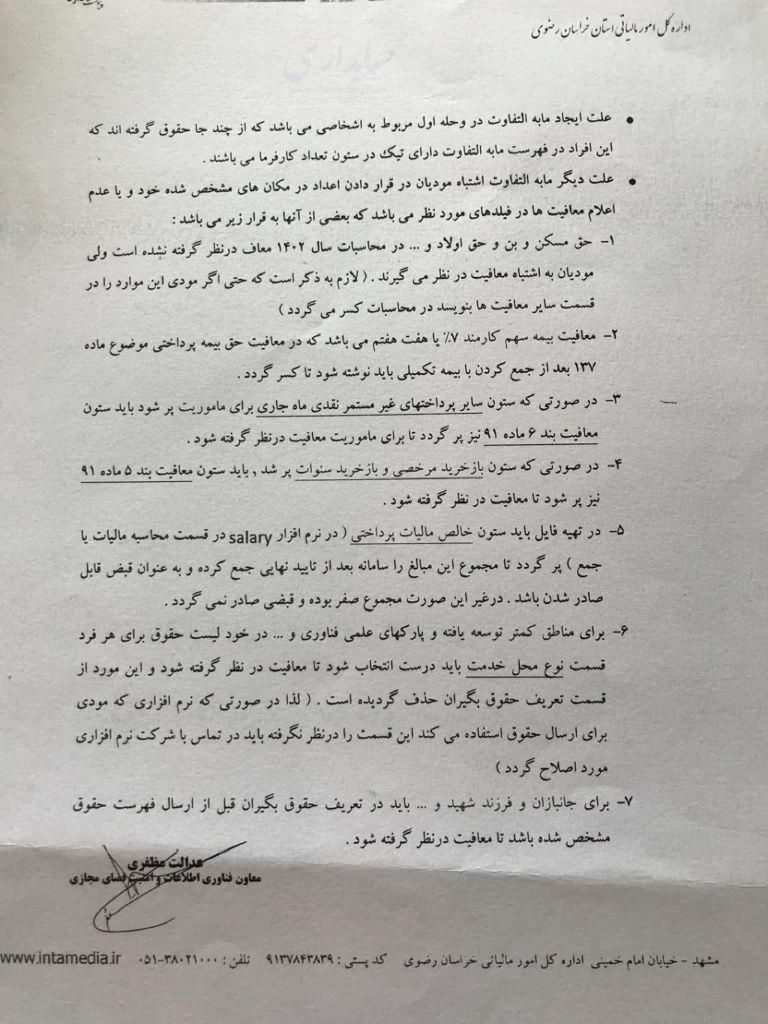 اداره کل امور مالیاتی استان خراسان رضوی
حسابداری
• علت ایجاد مابه التفاوت در وحله اول مربوط به اشخاصی می باشد که از چند جا حقوق گرفته اند که
این افراد در فهرست مابه التفاوت دارای تیک در ستون تعداد کارفرما می باشند .
• علت دیگر مابه التفاوت اشتباه مودیان در قرار دادن اعداد در مکان های مشخص شده خود و یا عدم
اعلام معافیت ها در فیلدهای مورد نظر می باشد که بعضی از آنها به قرار زیر می باشد :
۱- حق مسکن و بن و حق اولاد و ... در محاسبات سال ۱۴۰۲ معاف درنظر گرفته نشده است ولی
مودیان به اشتباه معافیت در نظر می گیرند . ( لازم به ذکر است که حتی اگر مودی این موارد را در
قسمت سایر معافیت ها بنویسد در محاسبات کسر می گردد )
۲- معافیت بیمه سهم کارمند ۷٪ یا هفت هفتم می باشد که در معافیت حق بیمه پرداختی موضوع ماده
۱۳۷ بعد از جمع کردن با بیمه تکمیلی باید نوشته شود تا کسر گردد .
۳- در صورتی که ستون سایر پرداختهای غیر مستمر نقدی ماه جاری برای ماموریت پر شود باید ستون
معافیت بند ۶ ماده ۹۱ نیز پر گردد تا برای ماموریت معافیت درنظر گرفته شود .
۴- در صورتی که ستون بازخرید مرخصی و بازخرید سنوات پر شد , باید ستون معافیت بند ۵ ماده ۹۱
نیز پر شود تا معافیت در نظر گرفته شود .
۵- در تهیه فایل باید ستون خالص مالیات پرداختی ( در نرم افزار salary در قسمت محاسبه مالیات یا
جمع ) پر گردد تا مجموع این مبالغ را سامانه بعد از تایید نهایی جمع کرده و به عنوان قبض قابل
صادر شدن باشد . درغیر این صورت مجموع صفر بوده و قبضی صادر نمی گردد .
۶- برای مناطق کمتر توسعه یافته و پارکهای علمی فناوری و ... در خود لیست حقوق برای هر فرد
قسمت نوع محل خدمت باید درست انتخاب شود تا معافیت در نظر گرفته شود و این مورد از
قسمت تعریف حقوق بگیران حذف گردیده است . ( لذا در صورتی که نرم افزاری که مودی
برای ارسال حقوق استفاده می کند این قسمت را درنظر نگرفته باید در تماس با شرکت نرم افزاری
مورد اصلاح گردد )
۷- برای جانبازان و فرزند شهید و ... باید در تعریف حقوق بگیران قبل از ارسال فهرست حقوق
مشخص شده باشد تا معافیت درنظر گرفته شود .
عدالت مظفری
معاون فناوری اطلاعات و امنیت فضای مجازی
مشهد - خیابان امام خمینی اداره کل امور مالیاتی خراسان رضوی کد پستی : ۹۱۳۷۸۴۳۸۳۹ تلفن : ۳۸۰۲۱۰۰۰-۰۵۱ www.intamedia.ir